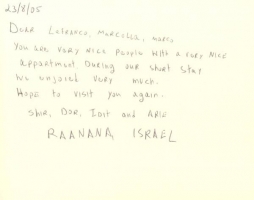 23/8/05
Dear Lofranco, Marcella, Marco
You are very nice people with a very nice
appartment During our short stay
We enjoied very much.
Hope to visit you again.
Shir, Dor, Idit and Arie
RAANANA, ISRAEL